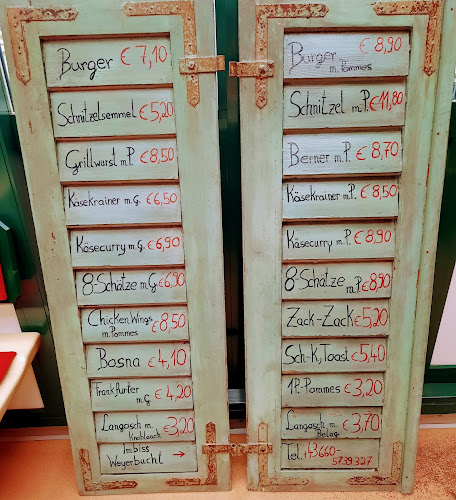 Burger €7,10
Schnitzelsemmel €5,20
Grillwurst m.P. €8,50
Käsekrainer m.G. €6,50
Käsecurry m.G. €6,90
8-Schätze m.G €6,90
Chicken Wings
m.Pommes €8,50
Bosna €4,10
Frankfurter
m.G €4,20
Langosch m.
Knoblauch €3,20
Imbiss
Weyerbucht →
Burger €8,90
m.Pommes
Schnitzel m.P. €11,80
Berner m.P. €8,70
Käsekrainer m.P. €8,50
Käsecurry m.P. €8,90
8-Schätze m.P €8,90
Zack-Zack €5,20
Sch-K,Toast €5,40
1P.-Pommes €3,20
Langosch m.
Belag €3,70
Tel. +43660-
5739327